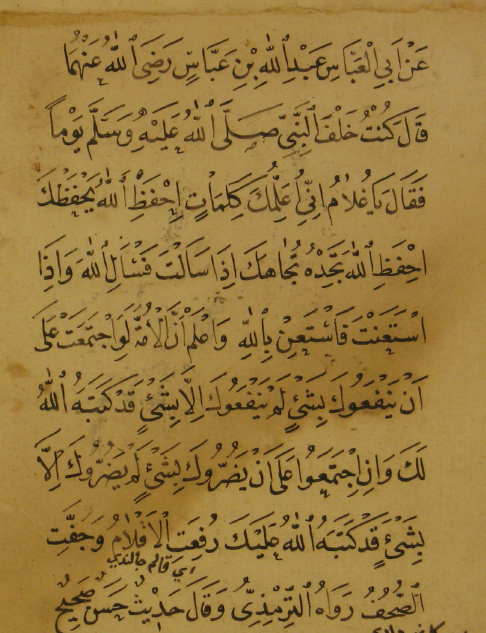 عَنْ اَبِي الْعَبَّاسِ عَبْدِ اللّٰهِ بْنِ عَبَّاسٍ رَضِيَ اللّٰهُ عَنْهُمَا
قَالَ كُنْتُ خَلْفَ النَّبِيِّ صَلَّى اللّٰهُ عَلَيْهِ وَسَلَّمَ يَوْماً
فَقَالَ يَا غُلَامُ اِنِّي اُعَلِّمُكَ كَلِمَاتٍ اِحْفَظِ اللّٰهَ يَحْفَظْكَ
احْفَظِ اللّٰهَ تَجِدْهُ تُجَاهَكَ اِذَا سَاَلْتَ فَسْئَلِ اللّٰهَ وَاِذَا
اسْتَعَنْتَ فَاسْتَعِنْ بِاللّٰهِ وَاعْلَمْ اَنَّ الْاُمَّةَ لَوِ اجْتَمَعَتْ عَلَى
اَنْ يَنْفَعُوكَ بِشَيْءٍ لَمْ يَنْفَعُوكَ اِلَّا بِشَيْءٍ قَدْ كَتَبَهُ اللّٰهُ
لَكَ وَاِنِ اجْتَمَعُوا عَلَى اَنْ يَضُرُّوكَ بِشَيْءٍ لَمْ يَضُرُّوكَ اِلَّا
بِشَيْءٍ قَدْ كَتَبَهُ اللّٰهُ عَلَيْكَ رُفِعَتِ الْاَقْلَامُ وَجَفَّتِ
الصُّحُفُ رَوَاهُ التِّرْمِذِيُّ وَقَالَ حَدِيثٌ حَسَنٌ صَحِيحٌ